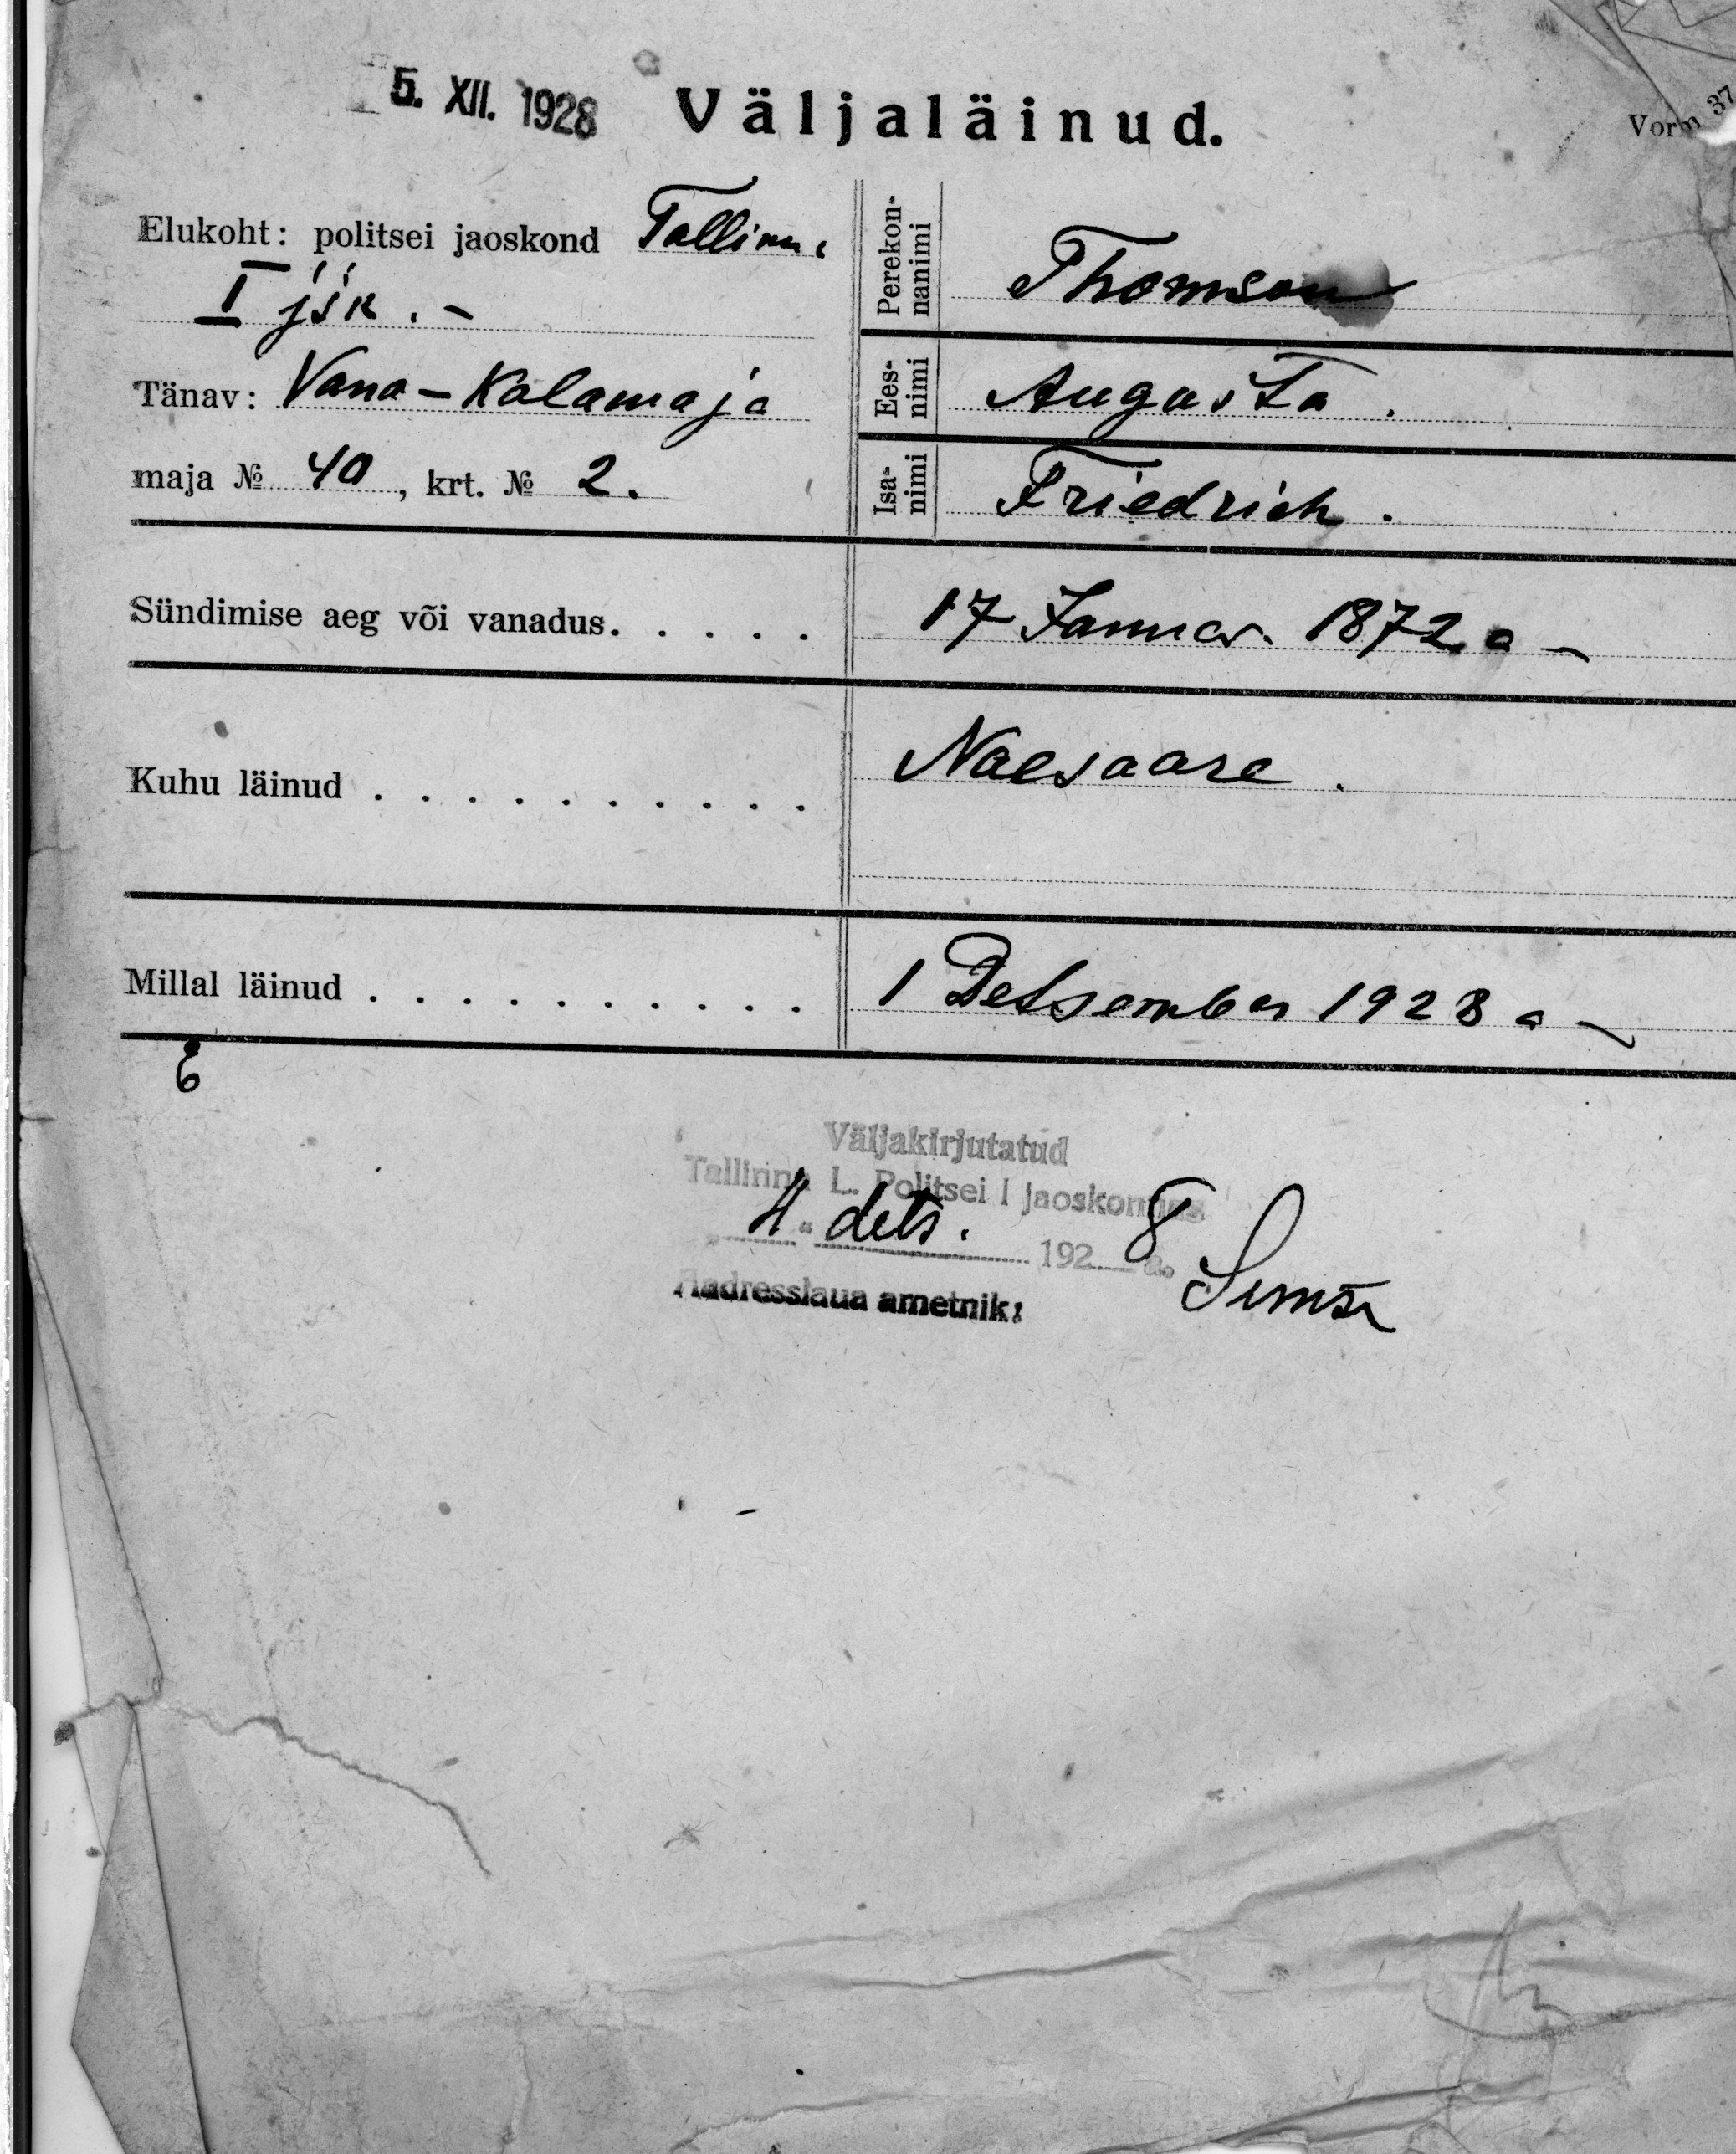 5. XII. 1928 Väljaläinud.
Vorm 37
Elukoht: politsei jaoskond Tallinn,
I jsk. -
Tänav: Vana-Kalamaja
maja № 40, krt. № 2.
Perekon-
nanimi
Thomson
Ees-
nimi
Augusta.
Isa-
nimi
Friedrich.
Sündimise aeg või vanadus. . . . . 17 Januar. 1872 a -
Kuhu läinud . . . . . . . . . . Naesaare.
Millal läinud . . . . . . . . . . 1 Detsember 1928 a -
6
Väljakirjutatud
Tallinna L. Politsei I jaoskonnas
„4“ dets. 1928 a.
Aadresslaua ametnik: